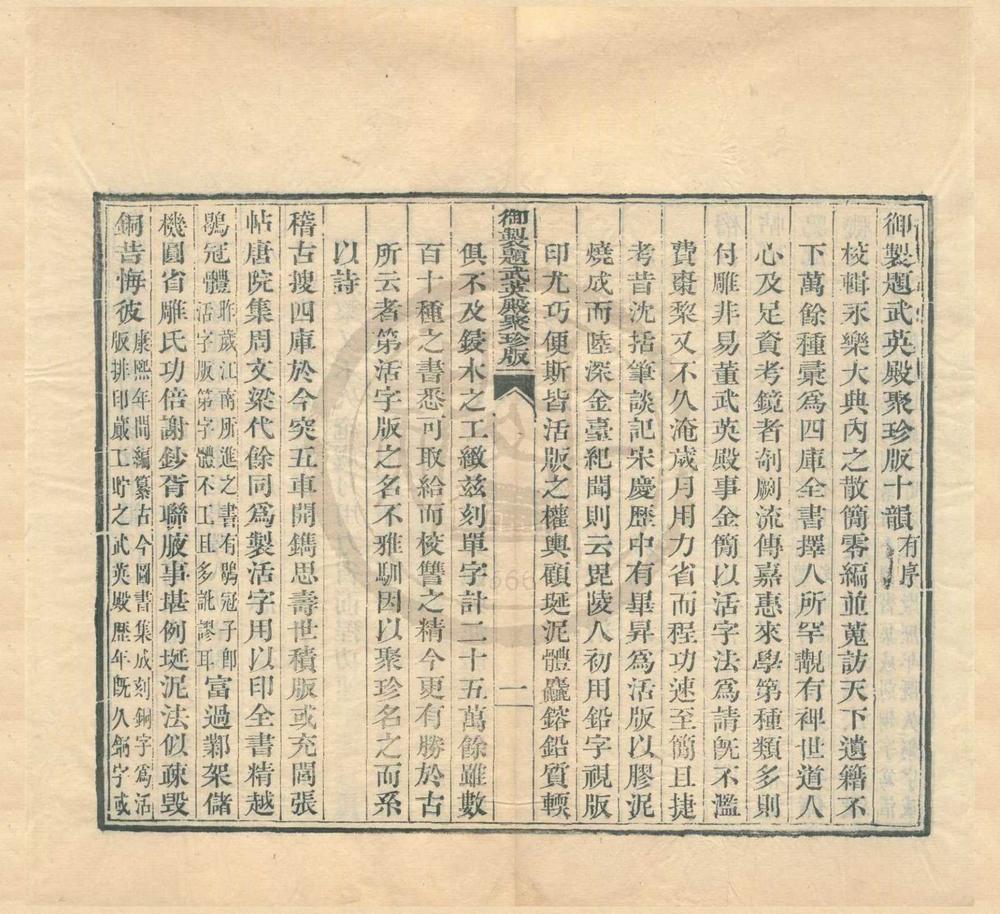 御製題武英殿聚珍版十韻有序
校輯永樂大典內之散簡零編並蒐訪天下遺籍不
下萬餘種彚爲四庫全書擇人所罕覯有裨世道人
心及足資考鏡者剞劂流傳嘉惠來學第種類多則
付雕非易董武英殿事金簡以活字法爲請旣不濫
費棗棃又不久淹歲月用力省而程功速至簡且捷
考昔沈括筆談記宋慶歷中有畢昇爲活版以膠泥
燒成而陸深金臺紀聞則云毘陵人初用鉛字視版
印尤巧便斯皆活版之權輿顧埏泥體麤鎔鉛質輭
御製題武英殿聚珍版
一
俱不及鋟木之工緻玆刻單字計二十五萬餘雖數
百十種之書悉可取給而校讐之精今更有勝於古
所云者第活字版之名不雅馴因以聚珍名之而系
以詩
稽古搜四庫於今突五車開鐫思壽世積版或充閭張
帖唐院集周文梁代餘同爲製活字用以印全書精越
鶡冠體昨歲江南所進之書有鶡冠子卽
活字版第字體不工且多訛謬耳富過鄴架儲
機圓省雕氏功倍謝鈔胥聯腋事堪例埏泥法似疎毀
銅昔悔彼康熙年間編纂古今圖書集成刻銅字爲活
版排印蕆工貯之武英殿歷年旣久銅字或